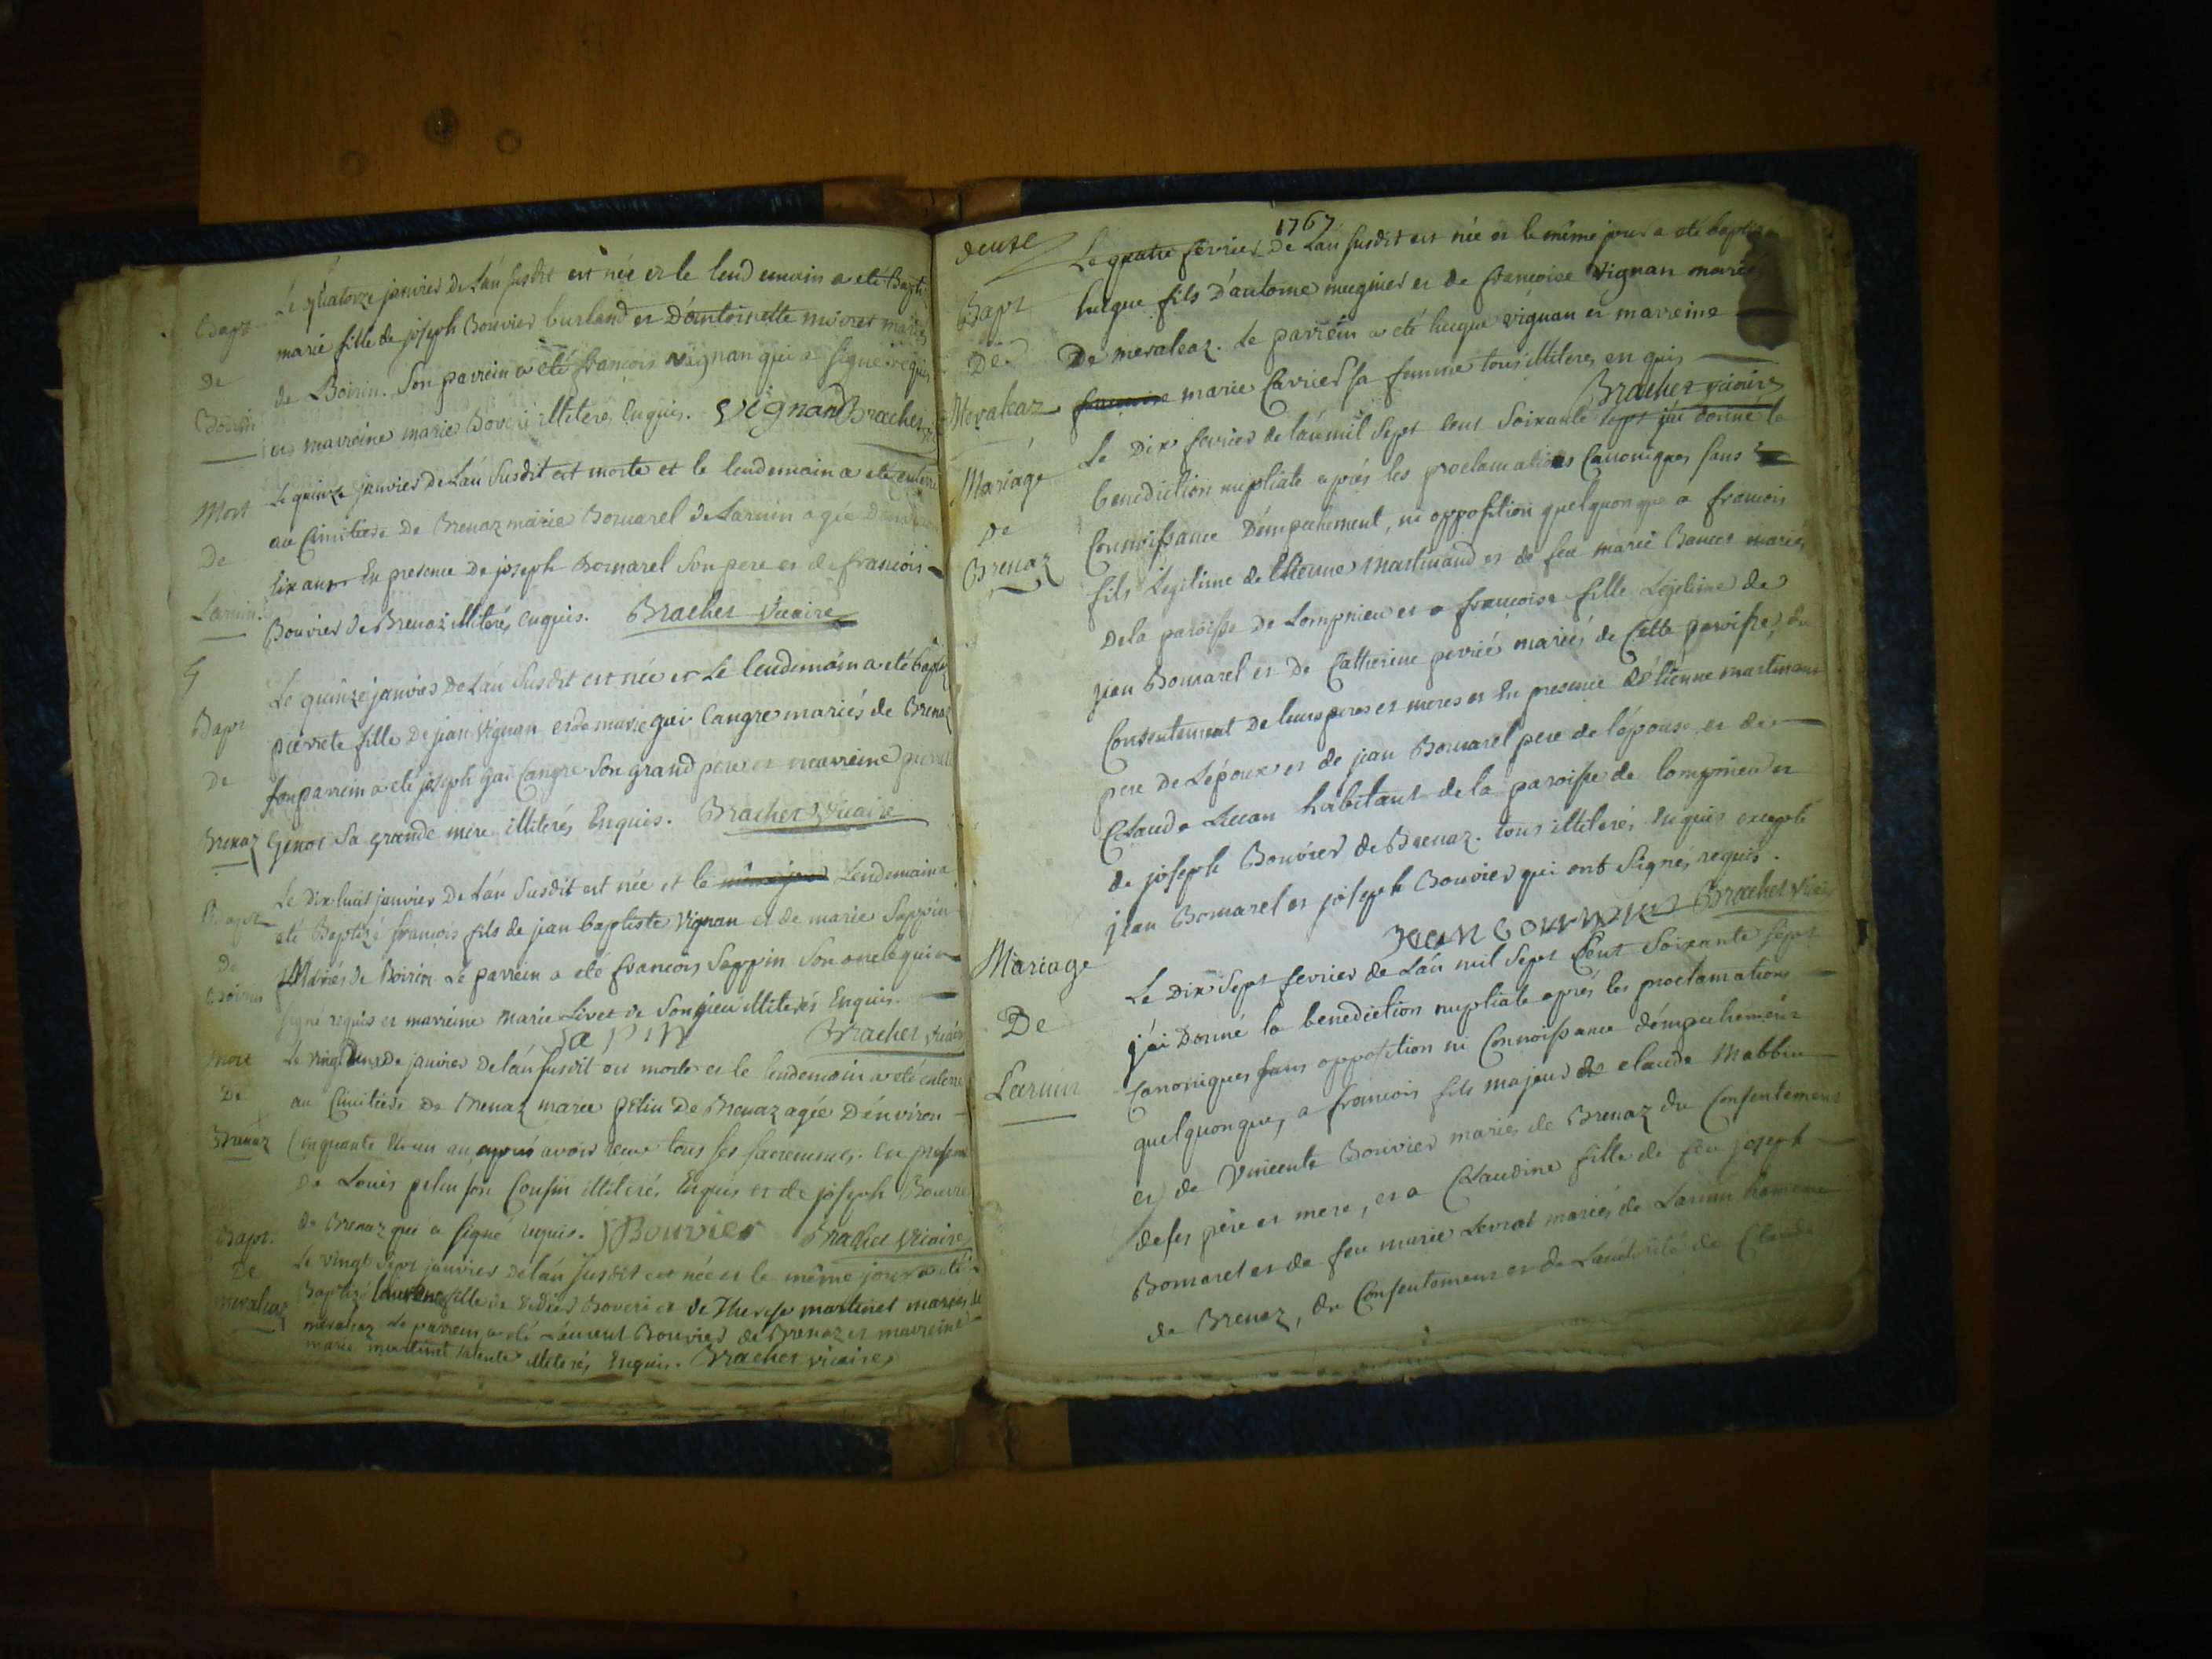 Bapt
de
Boirin
Le quatorze janvier de L'an susdit est née et le lendemain a eté Bapti
marie fille de joseph Bouvier burland et D'antoinette mivret mariés
de Boirin. Son parrein a eté francois vignan qui a signé requis
et marreine marie Boveri illiteres Enquis. Vignan Brachet
Mort
De
Larnin.
Le quinze janvier de L'an Susdit est morte et le lendemain a eté enterré
au Cimitiere De Brenaz marie Bornarel de Larnin agée D'environ
six ans En presence De joseph Bornarel Son pere et de francois
Bouvier de Brenaz illiterés enquis. Brachet Vicaire
Bapt
De
Brenaz
Le quinze janvier De L'an Susdit est née et Le lendemain a eté baptis
pierrete fille De jean Vignan et de marie gai Cangre mariés de Brenaz
son parrein a eté joseph gai Cangre Son grand pere et marreine
Genot Sa grande mere illiterés Enquis. Brachet Vicaire
Bapt
De
Boirin
Le Dix huit janvier De L'an Susdit est née et le même jour Lendemain a
eté Baptizé francois fils de jean baptiste Vignan et de marie Sappin
Mariés de Boirin Le parrein a eté francois Sappin Son oncle qui a
signé requis et marreine Marie Livet de Sonjieu illiterés Enquis.
Sapin Brachet Vicaire
Mort
De
Brenaz
Le vingt de janvier De L'an susdit est morte et le lendemain a eté enterré
au Cimitiere De Brenaz marie pelin De Brenaz agée D'environ
Cinquante et un an, apres avoir receu tous ses sacremens. en presence
De Louis pelin son Cousin illiteré, Enquis et de joseph Bouvier
de Brenaz qui a signé requis. JBouvier Brachet Vicaire
Bapt.
De
meraleaz
Le vingt Sept janvier De L'an Susdit est née et le même jour a eté
Baptizé fille de Didier Boveri et de Therese martinet mariés de
meraleaz Le parrein a eté Laurent Bouvier de Brenaz et marreine
marie martinet satente illiterés, Enquis. Brachet vicaire
deuxe
1767
Bapt
De
Meraleaz
Le quatre fevrier De L'an susdit est née et le même jour a eté baptizé
lucque fils D'antoine mugnier et de francoise Vignan mariés
De meraleaz. Le parrein a eté lucque vignan et marreine
francoise marie Carrier sa femme tous illiteres, enquis
Brachet vicaire
Mariage
De
Brenaz
Le Dix fevrier de L'an mil Sept Cent Soixante sept j'ai donné la
benediction nuptiale aprés les proclamations Canoniques, sans
Connoissance D'empechement, ni opposition quelquonque a francois
fils Legitime de Etienne martinaud et de feu marie Bancet mariés
De la paroisse De Lompnieu et a francoise fille Legitime de
jean Bornarel et De Catherine perrié mariés de Cette paroisse, du
Consentement De leurs peres et meres et En presence d'étienne martinaud
pere De L'époux et de jean Bornarel pere de l'épouse et de
Claude Lucan habitant de la paroisse de lompnieu et
de joseph Bouvier de Brenaz. tous illiterés Enquis excepté
jean Bornarel et joseph Bouvier qui ont Signé, requis.
Brachet Vicaire
Mariage
De
Larnin
Le Dix Sept fevrier de L'an mil Sept Cent Soixante Sept
j'ai Donné la benediction nuptiale aprés les proclamations
Canoniques sans opposition ni Connoissance d'empechement
quelquonque, a francois fils majeur de claude Mabbin
et de Vincente Bouvier mariés de Brenaz du Consentement
de ses père et mere, et a Claudine fille de feu joseph
Bornarel et de feu marie Levrat mariés de Larnin hameau
de Brenaz, du Consentement et de L'autorité de Claude